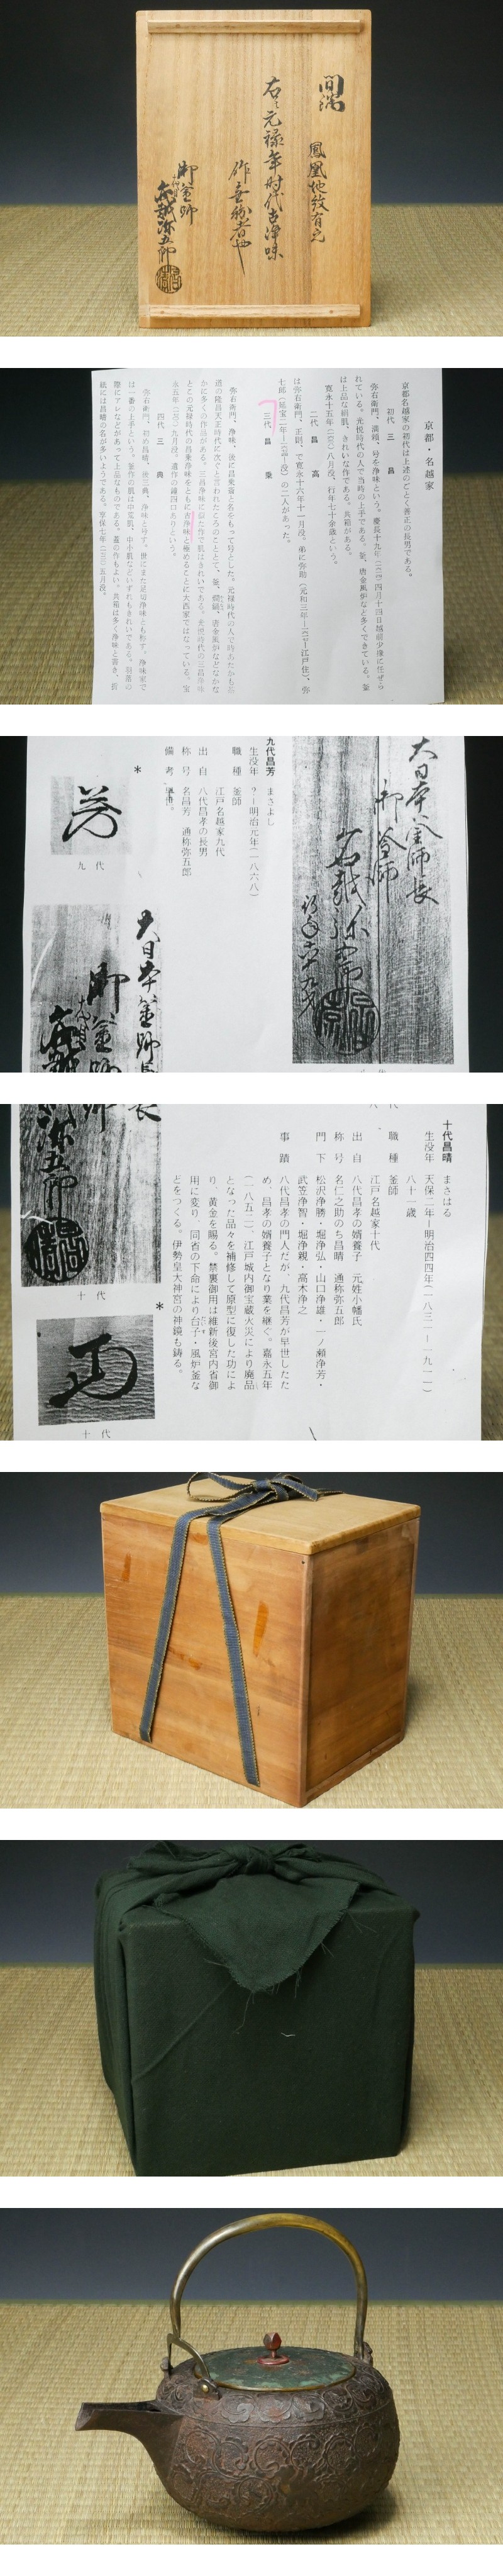 間鍋
鳳凰地紋有之
右ハ元禄年时代古浄味
作無紛者也
御釜師
名越弥五郎
京都・名越家
京都名越家の初代は上述のごとく善正の長男である。
初代 三昌
弥右衛門、
号を浄味という。慶長十九年
四月十四日越前少掾に任ぜら
れている。
時代の人で当時の上手である。釜、唐金風炉など多くできている。釜
は上品な絹肌、きれいな作である。共箱がある。
寛永十五年
八月没、行年七十余歳という。
二代 昌高
は弥右衛門、
で寛永十六年十一月没。弟に弥助
江戸住）、弥
七郎
没）の二人があった。
三代 昌乗
弥右衛門、浄味、後に昌乗斎と名をもって号とした。元禄時代の人で
道の隆昌天正時代に次ぐと言われたころのこととて、釜、
唐金風炉などなかな
かに多くの作品がある。三昌浄味に似た作で肌はきれいである。
時代の三昌浄味
とこの元禄時代の昌乗浄味をともに古浄味と極めることに大西家ではなっている。宝
永五年
九月没。遺作の鐘四口ありという。
四代 三典
弥右衛門、初め昌晴、
三典、浄味と号す。世にまた足切浄味とも称す。浄味家で
は一番の上手という。釜作の肌は中荒肌、中小肌などいずれもきれいである。羽落の
際にアレなどがあって上品なものである。蓋の作もよい。共箱は多く浄味と書き、折
紙には昌晴の名が多いようである。享保七年
五月没。
大日本釜師長
御釜師
名越弥五郎
行年六十九才
八代
九代昌芳 まさよし
生没年 ？―明治元年（一八六八）
職種 釜師
江戸名越家九代
出自 八代昌孝の長男
称号 名昌芳 通称弥五郎
備考 早世。
*
芳
九代
大日本釜師長
御釜師
名越弥五郎
十代昌晴 まさはる
生没年 天保二年―明治四四年（一八三一―一九一一）
八十一歳
職種 釜師
江戸名越家十代
出自 八代昌孝の婿養子 元姓小幡氏
称号 名仁之助のち昌晴 通称弥五郎
門下 松沢浄勝・堀浄弘・山口浄雄・一ノ瀬浄芳・
武笠浄智・堀浄親・高木浄之
事蹟 八代昌孝の門人だが、九代昌芳が早世したた
め、昌孝の婿養子となり業を継ぐ。嘉永五年
（一八五二）江戸城内御宝蔵火災により廃品
となった品々を補修して原型に復した功によ
り、黄金を賜る。禁裏御用は維新後宮内省御
用に変り、同省の下命により台子・風炉釜な
どをつくる。伊勢皇大神宮の神鏡も鋳る。
名越弥五郎
十代
*
十代